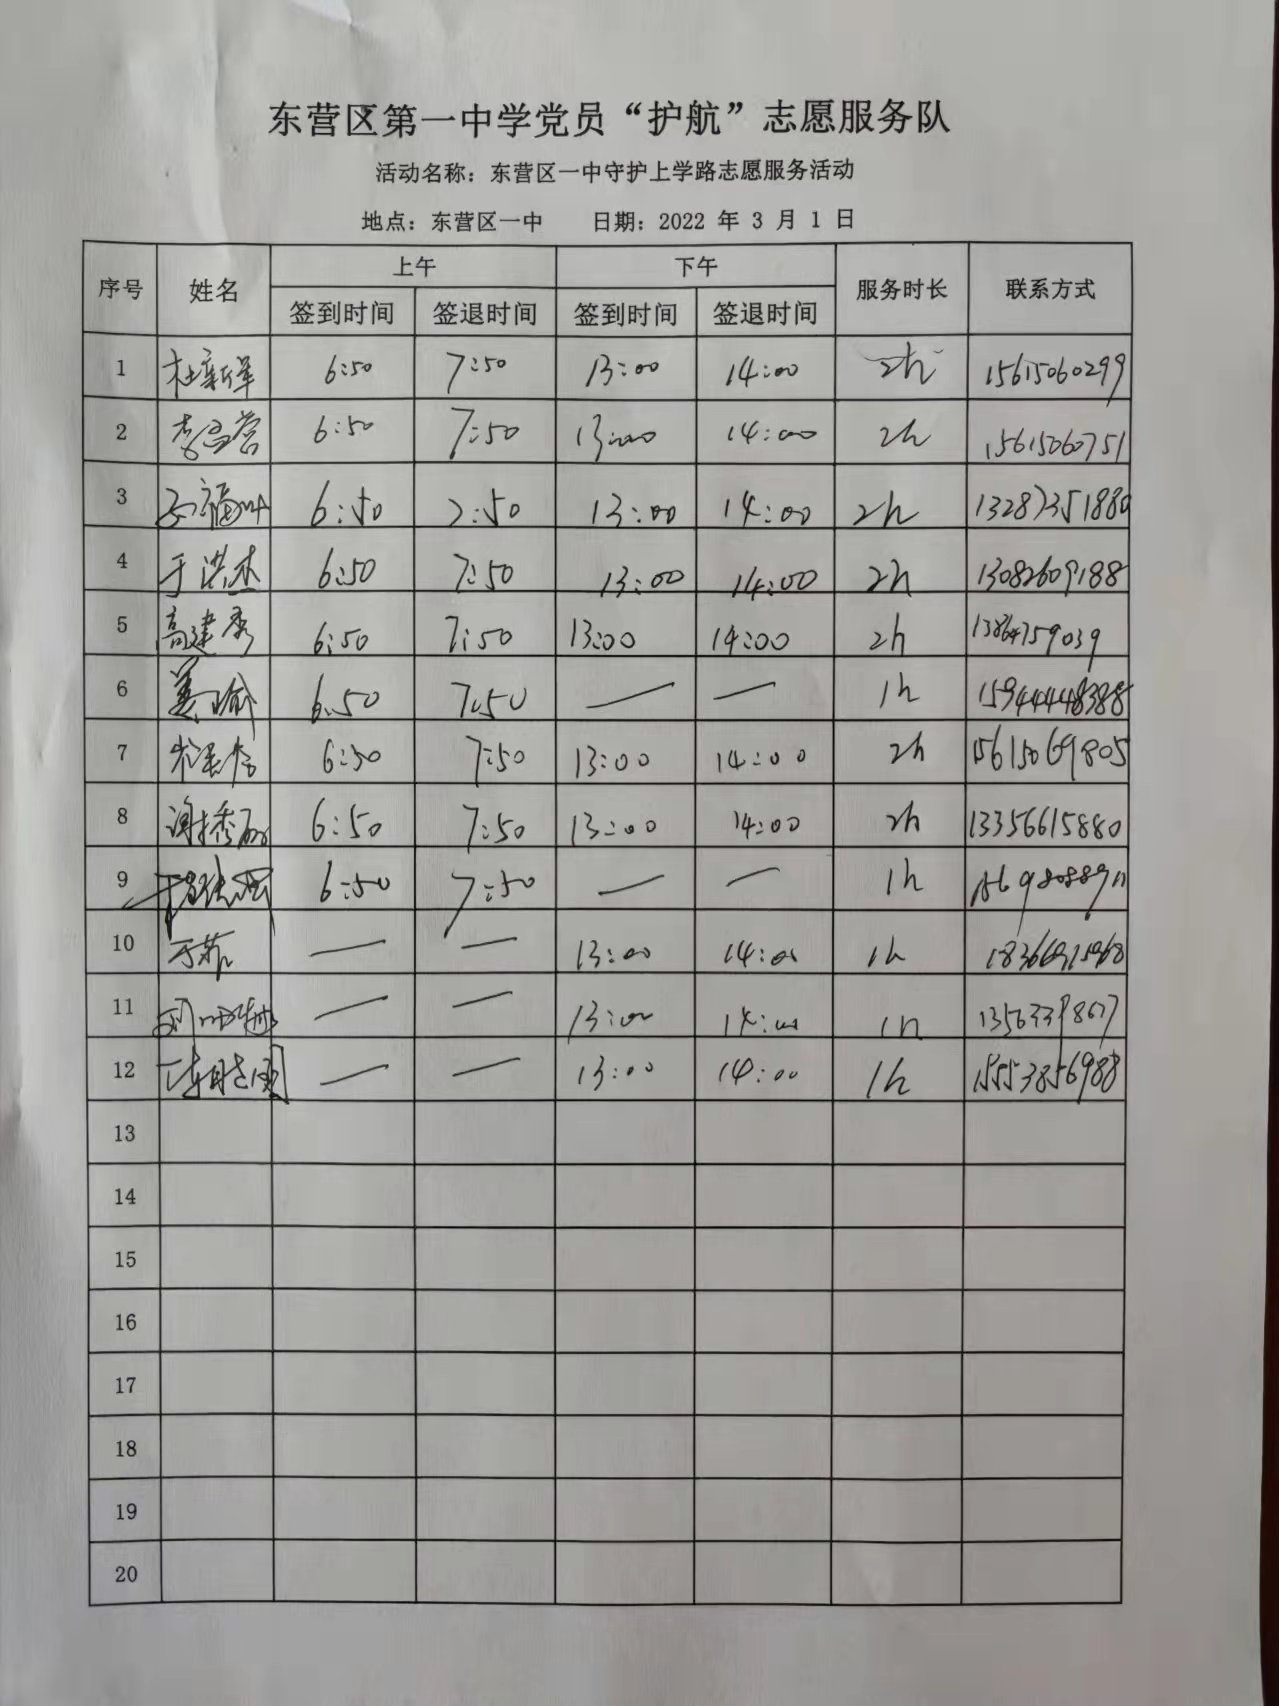 东营区第一中学党员“护航”志愿服务队
活动名称：东营区一中守护上学路志愿服务活动
地点：东营区一中 日期：2022 年 3 月 1 日
序号 姓名 上午 下午 服务时长 联系方式
签到时间 签退时间 签到时间 签退时间
1 杜新军 6:50 7:50 13:00 14:00 2h 15615060299
2 李 6:50 7:50 13:00 14:00 2h 15615060751
3 6:50 7:50 13:00 14:00 2h 13287351880
4 于洪杰 6:50 7:50 13:00 14:00 2h 13082609188
5 高建秀 6:50 7:50 13:00 14:00 2h 13864759039
6 姜瑜 6:50 7:50 — — 1h
7 6:50 7:50 13:00 14:00 2h 15615069805
8 谢秀 6:50 7:50 13:00 14:00 2h 13356615880
9 6:50 7:50 — — 1h
10 于菲 — — 13:00 14:00 1h
11 — — 13:00 14:00 1h
12 — — 13:00 14:00 1h 15553856988
13
14
15
16
17
18
19
20